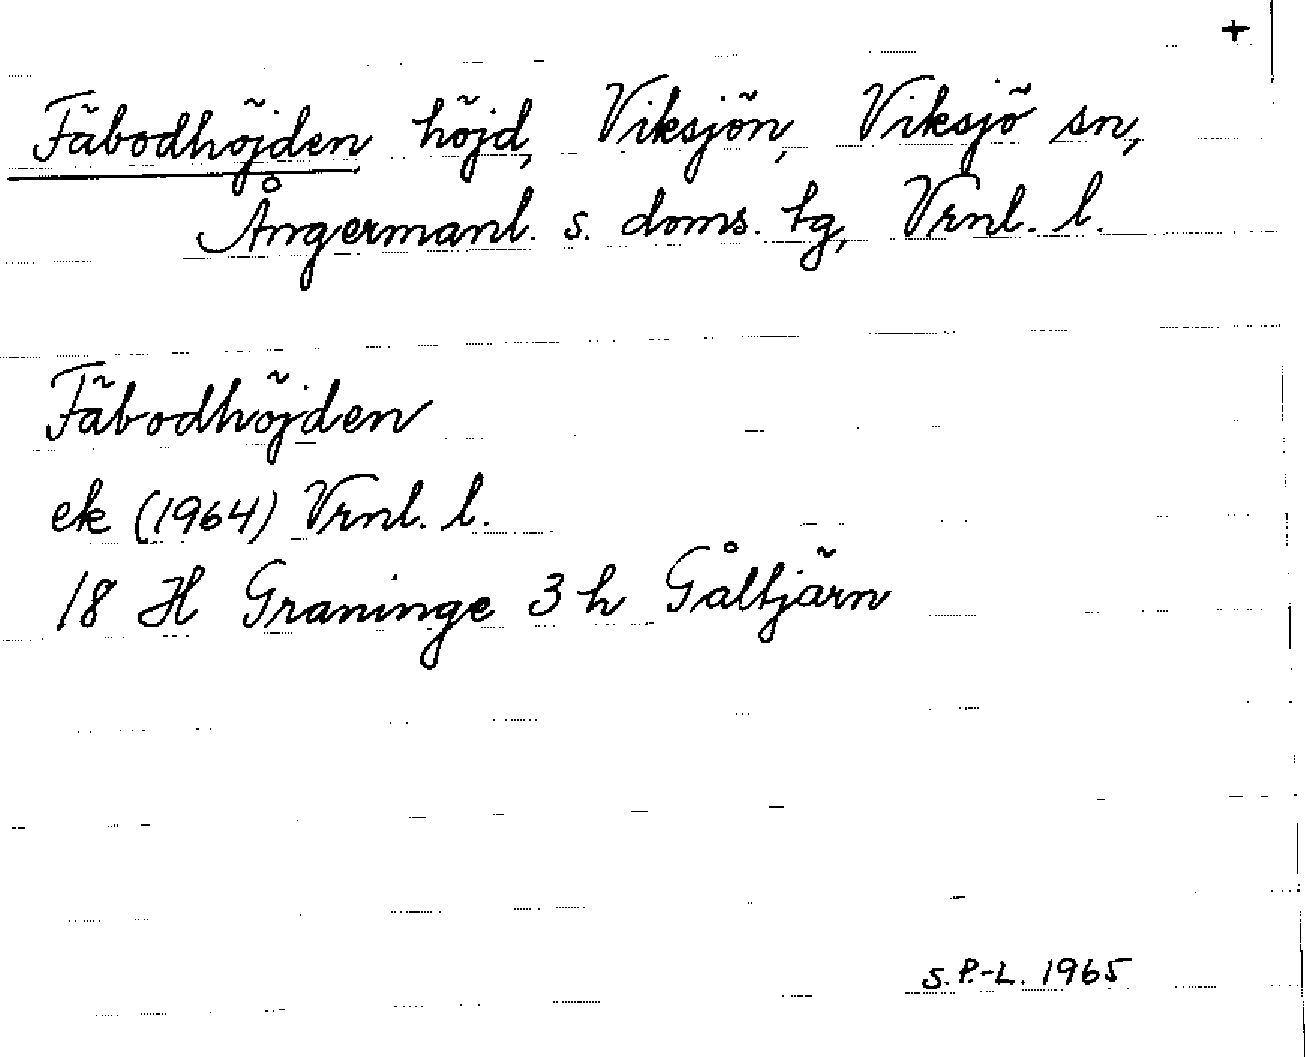 +
Fäbodhöjden höjd, Viksjön, Viksjö sn,
Ångermanl. s. doms. tg, Vrnl. l.
Fäbodhöjden
ek (1964) Vrnl. l.
18 H Graninge 3 h Gåltjärn
S. P.-L. 1965